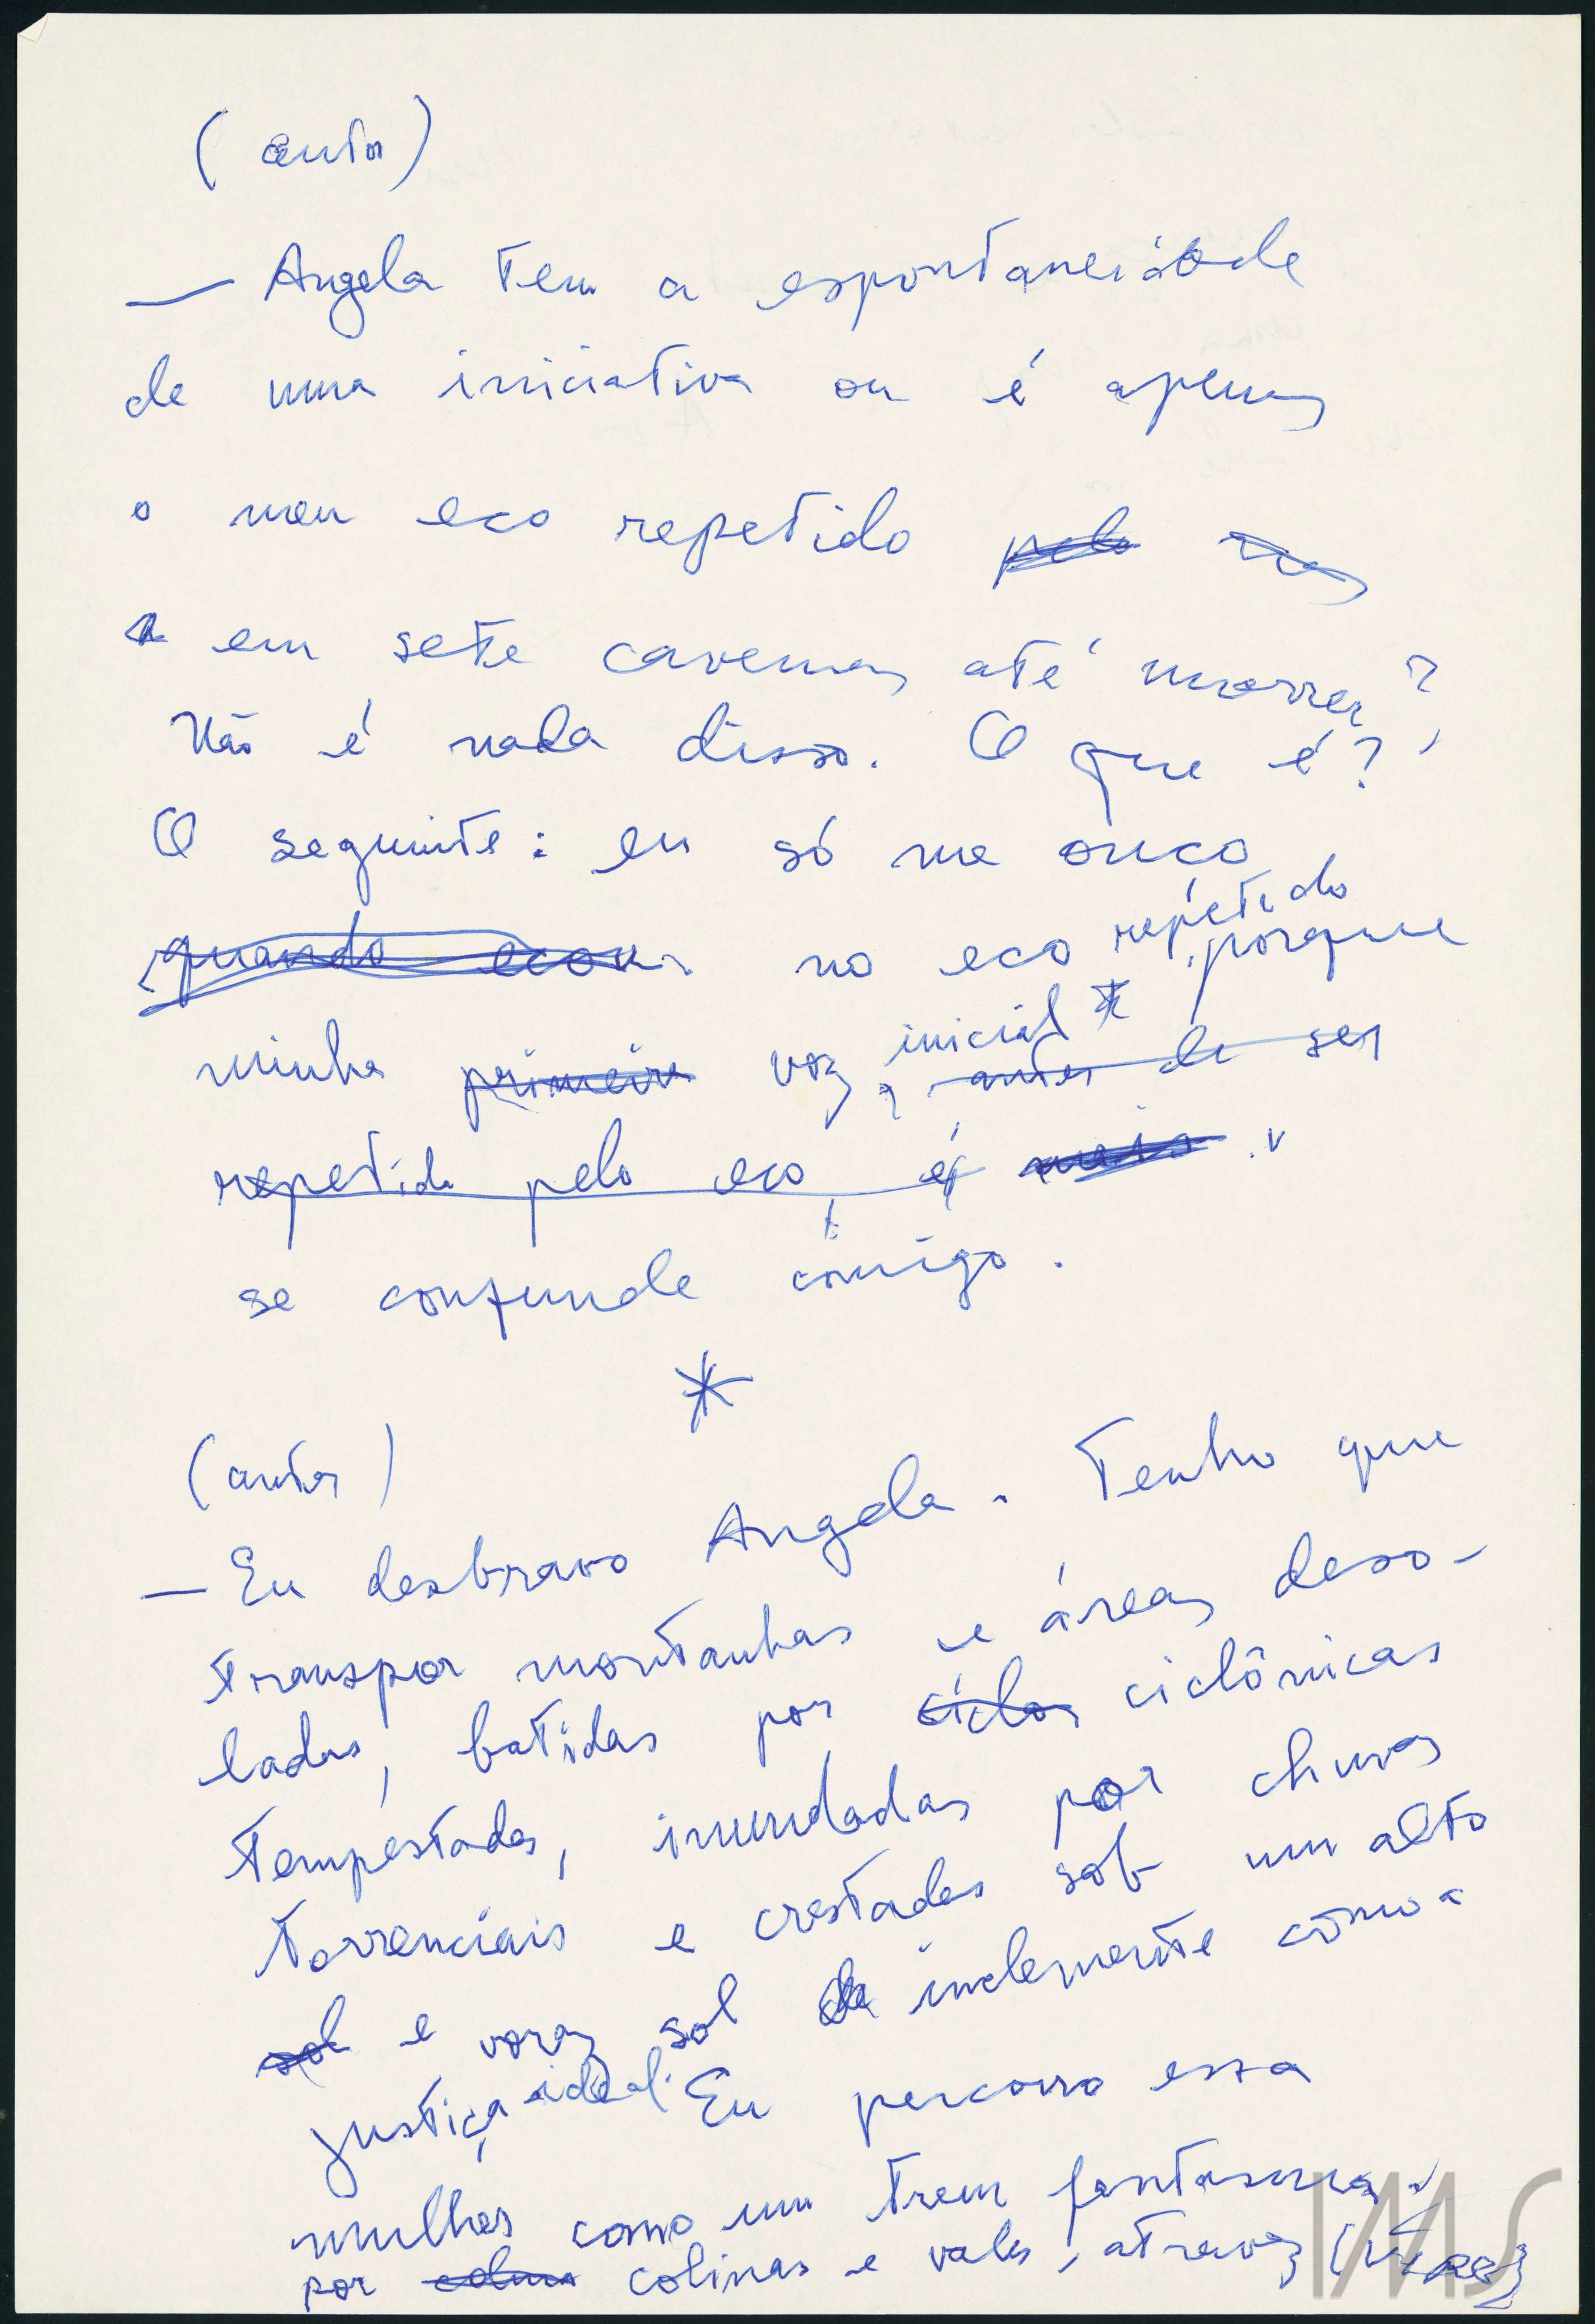 (autor)
— Angela tem a espontaneidade
de uma iniciativa ou é apenas
o meu eco repetido pelo
em sete cavernas até morrer?
Não é nada disso. O que é?
O seguinte: eu só me ouço
repetido
quando ecou no eco, porque
inicial
minha primeira voz, antes de ser
repetida pelo eco, é mais
se confunde comigo.
*
(autor)
— Eu desbravo Angela. Tenho que
transpor montanhas e áreas deso-
ladas, batidas por ciclos ciclônicas
tempestades, inundadas por chuvas
torrenciais e crestadas sob um alto
sol e voraz sol de inclemente como a
justiça ideal. Eu percorro essa
mulher como um trem fantasma,
por colinas e vales, através
IMS